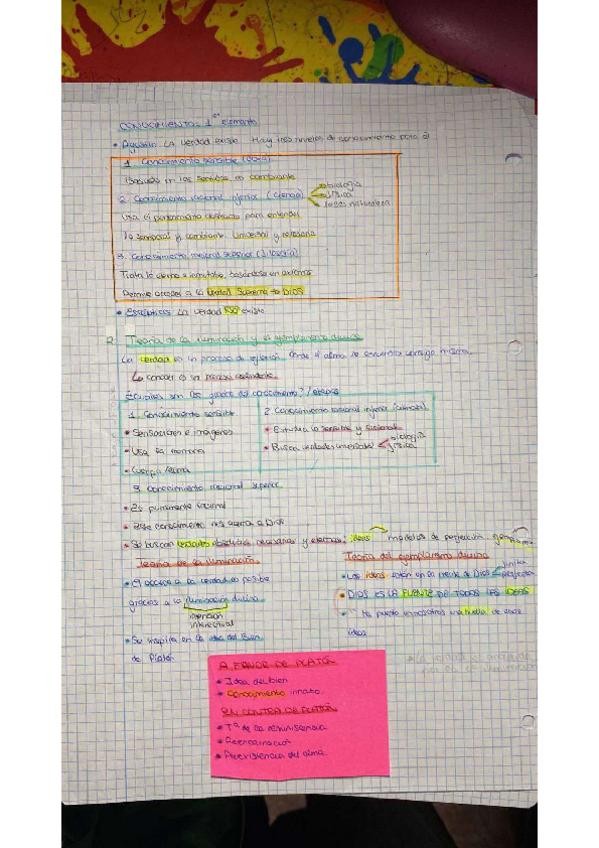 CONOCIMIENTO: 1er elemento
• Agustín: La verdad existe. Hay tres niveles de conocimiento para él
1. Conocimiento sensible (doxa)
Basado en los sentidos es cambiante
2. Conocimiento racional inferior (ciencia)
biología
física
leyes naturaleza
Usa el para entender
lo temporal y cambiante. Universal y necesaria
3. Conocimiento racional superior (filosofía)
Trata lo eterno e inmutable, basándose en axiomas
Permite acceder a la verdad Suprema → DIOS
• Escépticos: La verdad NO existe
2. Teoría de la iluminación y el ejemplarismo divino
La verdad es un proceso de donde el alma se encuentra consigo misma.
↳ conocer es un proceso ascendente
¿Cuáles son los grados del conocimiento? / etapas
1. Conocimiento sensible
• Sensaciones e imágenes
• Usa la memoria
• Cuerpo / alma
2. Conocimiento racional inferior (ciencia)
• Estudia lo sensible y
• Busca verdades universales
biología
física
3. Conocimiento racional superior
• Es puramente racional
• Este conocimiento nos acerca a Dios
• Se buscan verdades absolutas necesarias y eternas: ideas modelos de perfección
Teoría de la iluminación
• El acceso a la verdad es posible
gracias a la iluminación divina
intelectual
• Se inspira en la idea del Bien
de Platón
Teoría del ejemplarismo divino
• Las ideas están en la mente de Dios
perfecta
• DIOS ES LA FUENTE DE TODAS LAS IDEAS
• " ha puesto en nosotros una huella de esas
ideas
A FAVOR DE PLATÓN
• Idea del bien
• Conocimiento innato
EN CONTRA DE PLATÓN
• Tª de la reminiscencia
• Reencarnación
• Preexistencia del alma